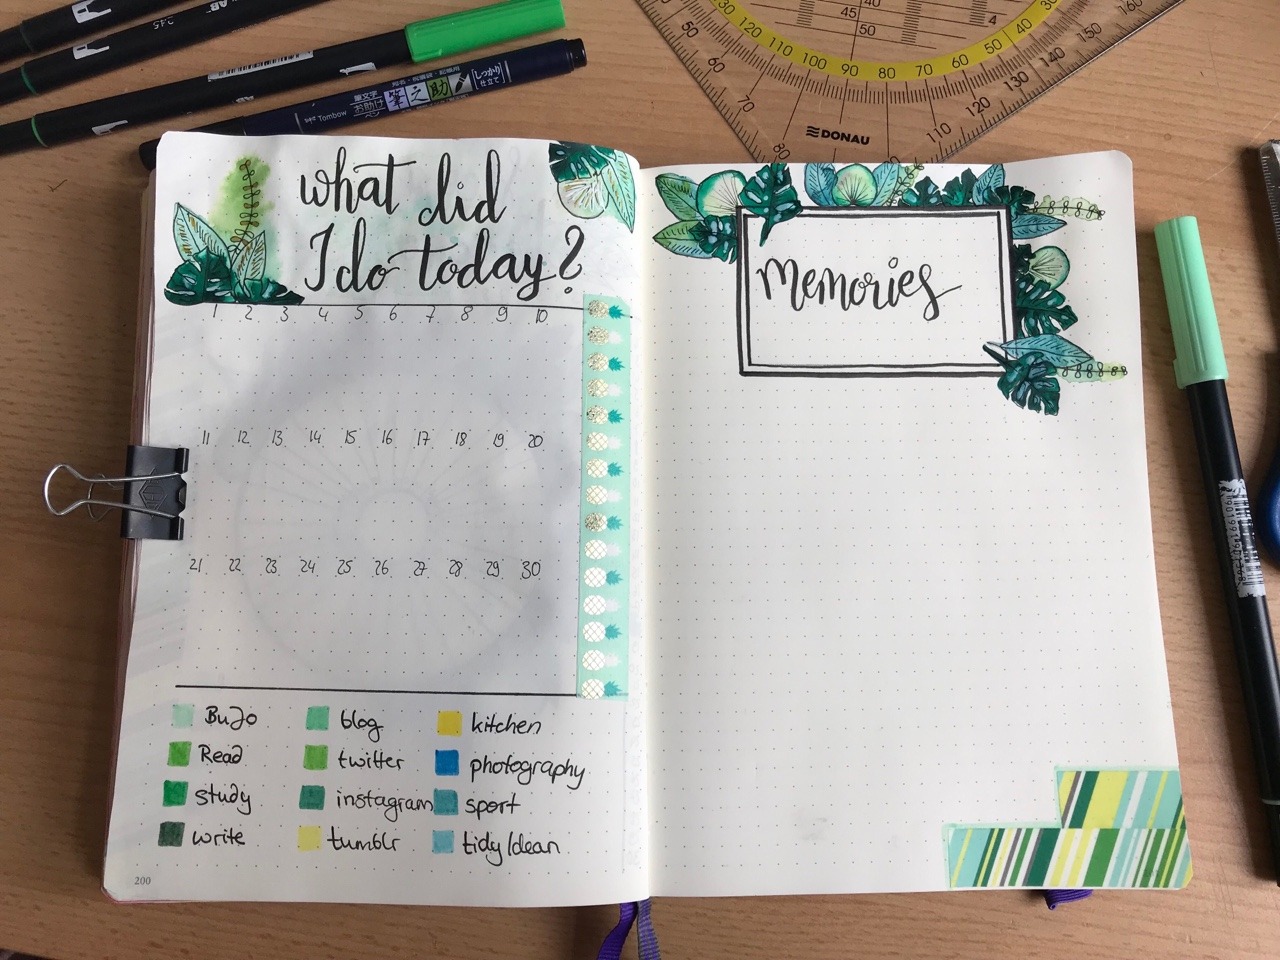 what did
I do today?
1 2 3 4 5 6 7 8 9 10
11 12 13 14 15 16 17 18 19 20
21 22 23 24 25 26 27 28 29 30
BuJo blog kitchen
Read twitter photography
study instagram sport
write tumblr tidy/clean
200
Memories
Tombow
筆文字
お助け
筆之助
しっかり
仕立て
245
DONAU
30 45 40 50 4 30
50 60 70 80
120 110 100 90 80 70 60 50 40 30
110 120 130 140 150 160